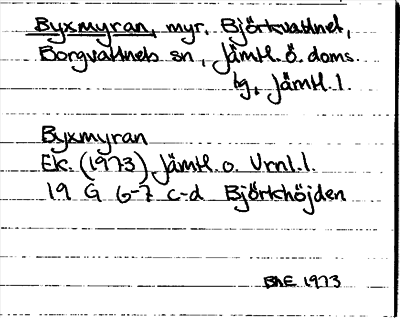 Byxmyran, myr, Björkvattnet,
Borgvattnets sn, Jämtl. ö. doms.
tg, Jämtl. l.
Byxmyran
Ek. (1973) Jämtl. o. Vrnl. l.
19 G 6-7 c-d Björkhöjden
BAE 1973